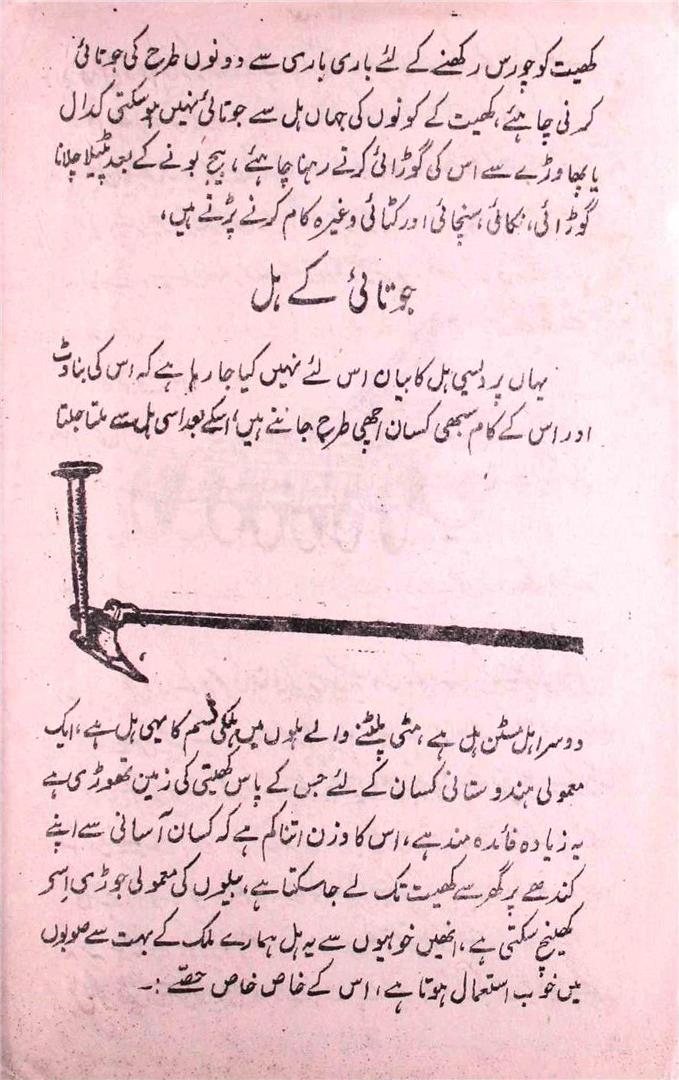 کھیت کو چورس رکھنے کے لئے باری باری سے دونوں طرح کی جوتائی
کرنی چاہئے، کھیت کے کونوں کی جہاں ہل سے جوتائی نہیں ہوسکتی کدال
یا پھاوڑے سے اس کی گوڑائی کرتے رہنا چاہئے، بیج بونے کے بعد پٹیلا چلانا
گوڑائی، نکائی، سنچائی اور کٹائی وغیرہ کام کرنے پڑتے ہیں،
جوتائی کے ہل
یہاں پر دلیسی ہل کا بیان اس لئے نہیں کیا جا رہا ہے کہ اس کی بناوٹ
اور اس کے کام سبھی کسان اچھی طرح جانتے ہیں، اسکے بعد اسی ہل سے ملتا جلتا
دوسرا ہل مسٹن ہل ہے، مٹی پلٹنے والے ہلوں میں ہلکی قسم کا یہی ہل ہے، ایک
معمولی ہندوستانی کسان کے لئے جس کے پاس کھیتی کی زمین تھوڑی ہے
یہ زیادہ فائدہ مند ہے، اس کا وزن اتنا کم ہے کہ کسان آسانی سے اپنے
کندھے پر گھر سے کھیت تک لے جاسکتا ہے، بیلوں کی معمولی جوڑی اسے
کھینچ سکتی ہے، انھیں خوبیوں سے یہ ہل ہمارے ملک کے بہت سے صوبوں
میں خوب استعمال ہوتا ہے، اس کے خاص خاص حصّے :۔